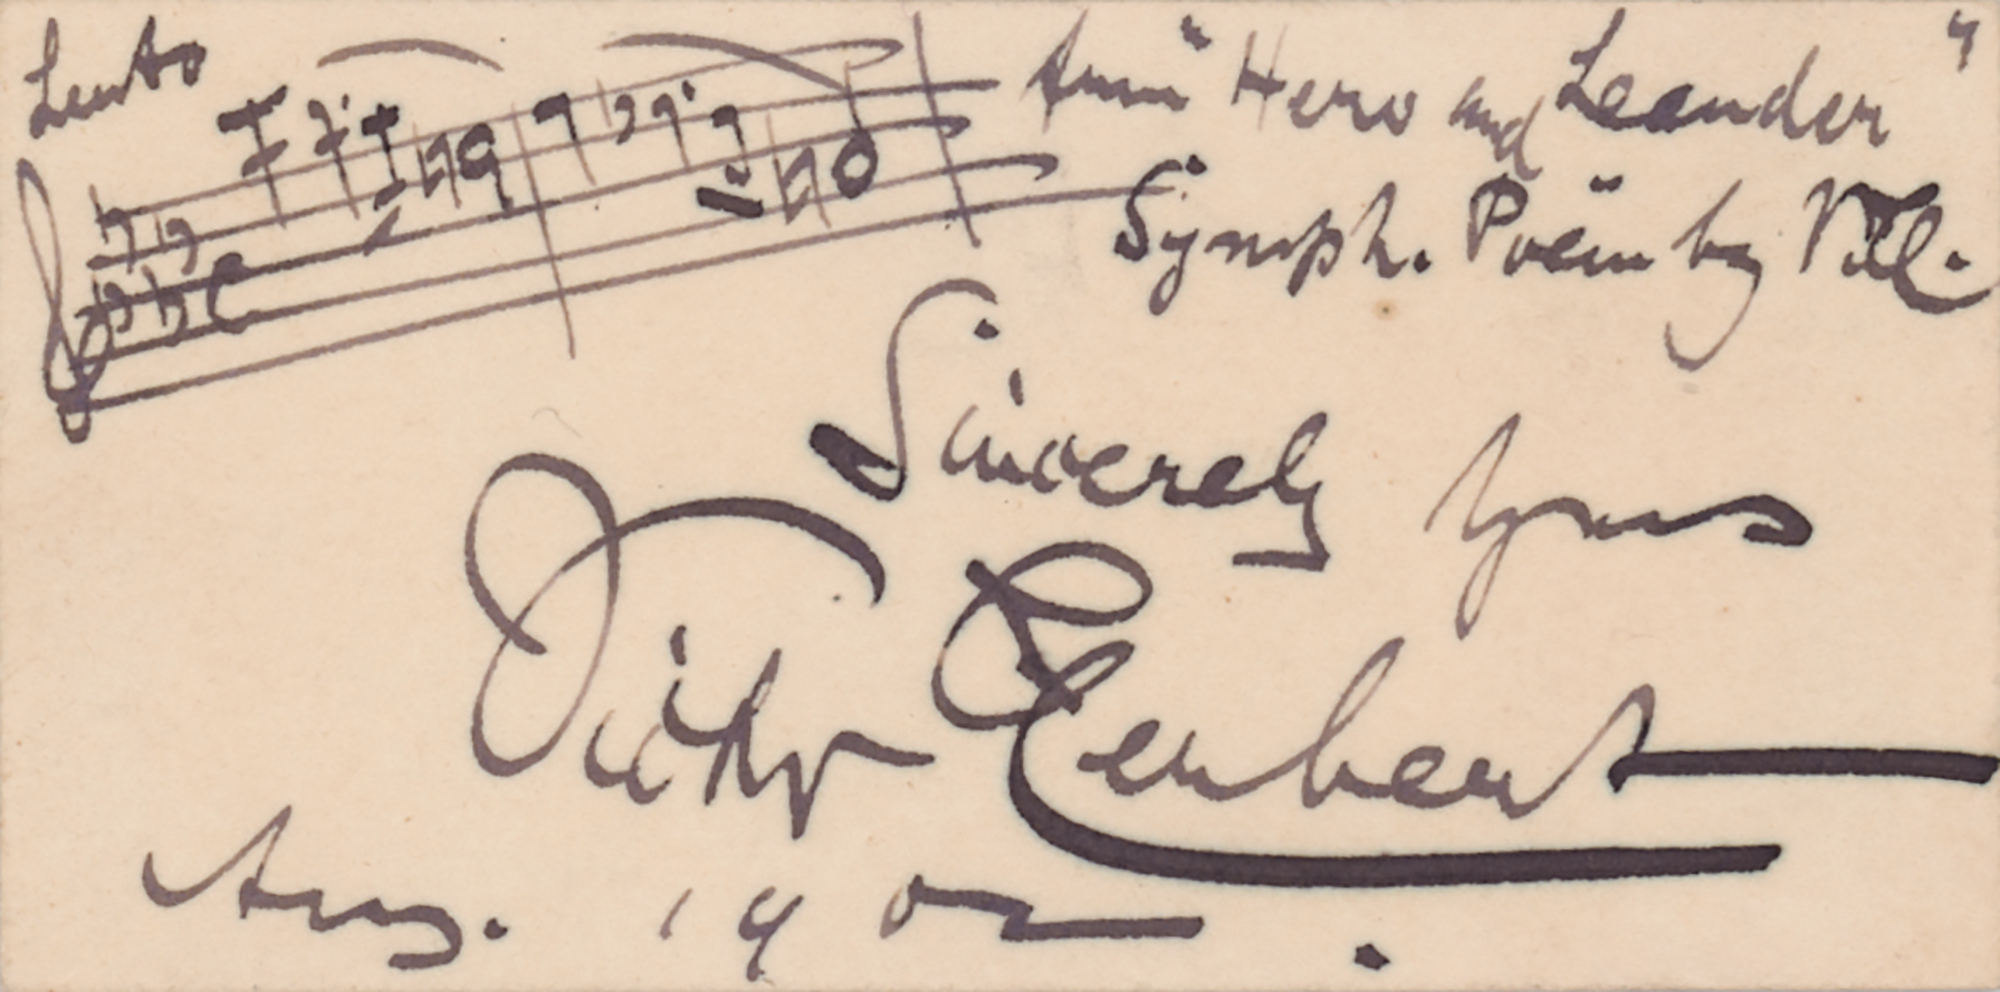 Lento
from "Hero and Leander"
Symph. Poem by V.H.
Sincerely yours
Victor Herbert
Aug. 1902.